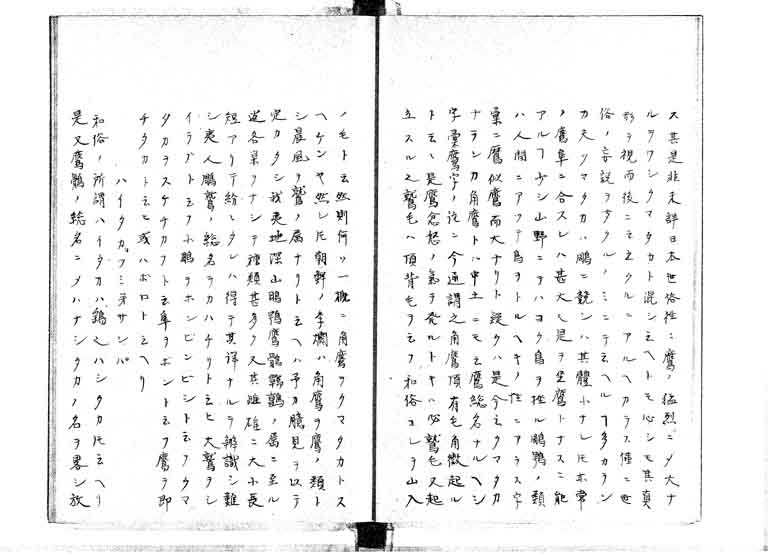 ス其是非未詳日本世俗性ニ鷹ノ猛烈ニメ大ナ
ルヲワシクマタカト混シ云ヘトモ心シモ其真
形ヲ視而後ニ云クルニアルヘカラス僅ニ世
俗ノ妄説ヲ ノミニテ云ヘル多カラン
カ夫クマタカハ鵰ニ競シハ其體小ナレ𪜈ホ常
ノ鷹隼ニ合スレハ甚大也是ヲ ナスニ能
アルヿ少シ山野ニテハヨク鳥ヲ 鵰鶚ノ類
ハ人間ニアフテ鳥ヲトルヘキノ性ニアラス字
彙ニ鷹似鷹而大ナリト ハ是今云クマタカ
ナランカ角鷹トハ中土ニモ云鷹総名ナルヘシ
字彙鷹字ノ注ニ今通謂之角鷹頂有毛角微起ル
ト云ヘ是鷹忿怒ノ氣ヲ発ルトキハ必鷲毛又起
立スル之鷲毛ハ頂背毛ヲ云フ和俗コレヲ山入
ノ毛ト云然則何ソ一概ニ角鷹ヲクマタカトス
ヘケンヤ然レ𪜈朝鮮ノ李 ハ角鷹ヲ鷹ノ類ト
シ晨風ヲ鷲ノ属ナリト云ヘハ予カ臆見ヲ以テ
定カタシ我夷地深山鵰鶚鷹鸇 ノ属ニ至ル
迠各巣ヲナシテ種類甚多ク又其雌雄ニ大小長
短アリテ紛レタレハ得テ其詳ナルヲ辨識シ難
シ夷人鵰鷲ノ総名ヲカハチリト云ヒ大鷲ヲシ
イラブト云フ小鵰ヲホンビンビシト云フクマ
タカヲスケチカフト云隼ヲホントエフ鷹ヲ即
チタカト云ヒ或ハホロト云ヘリ
ハイタカ フミヲサンパ
和俗ノ所謂ハイタカハ鷂也ハシタカ𪜈云ヘリ
是又鷹鸇ノ総名ニメハナシタカノ名ヲ畧シ放